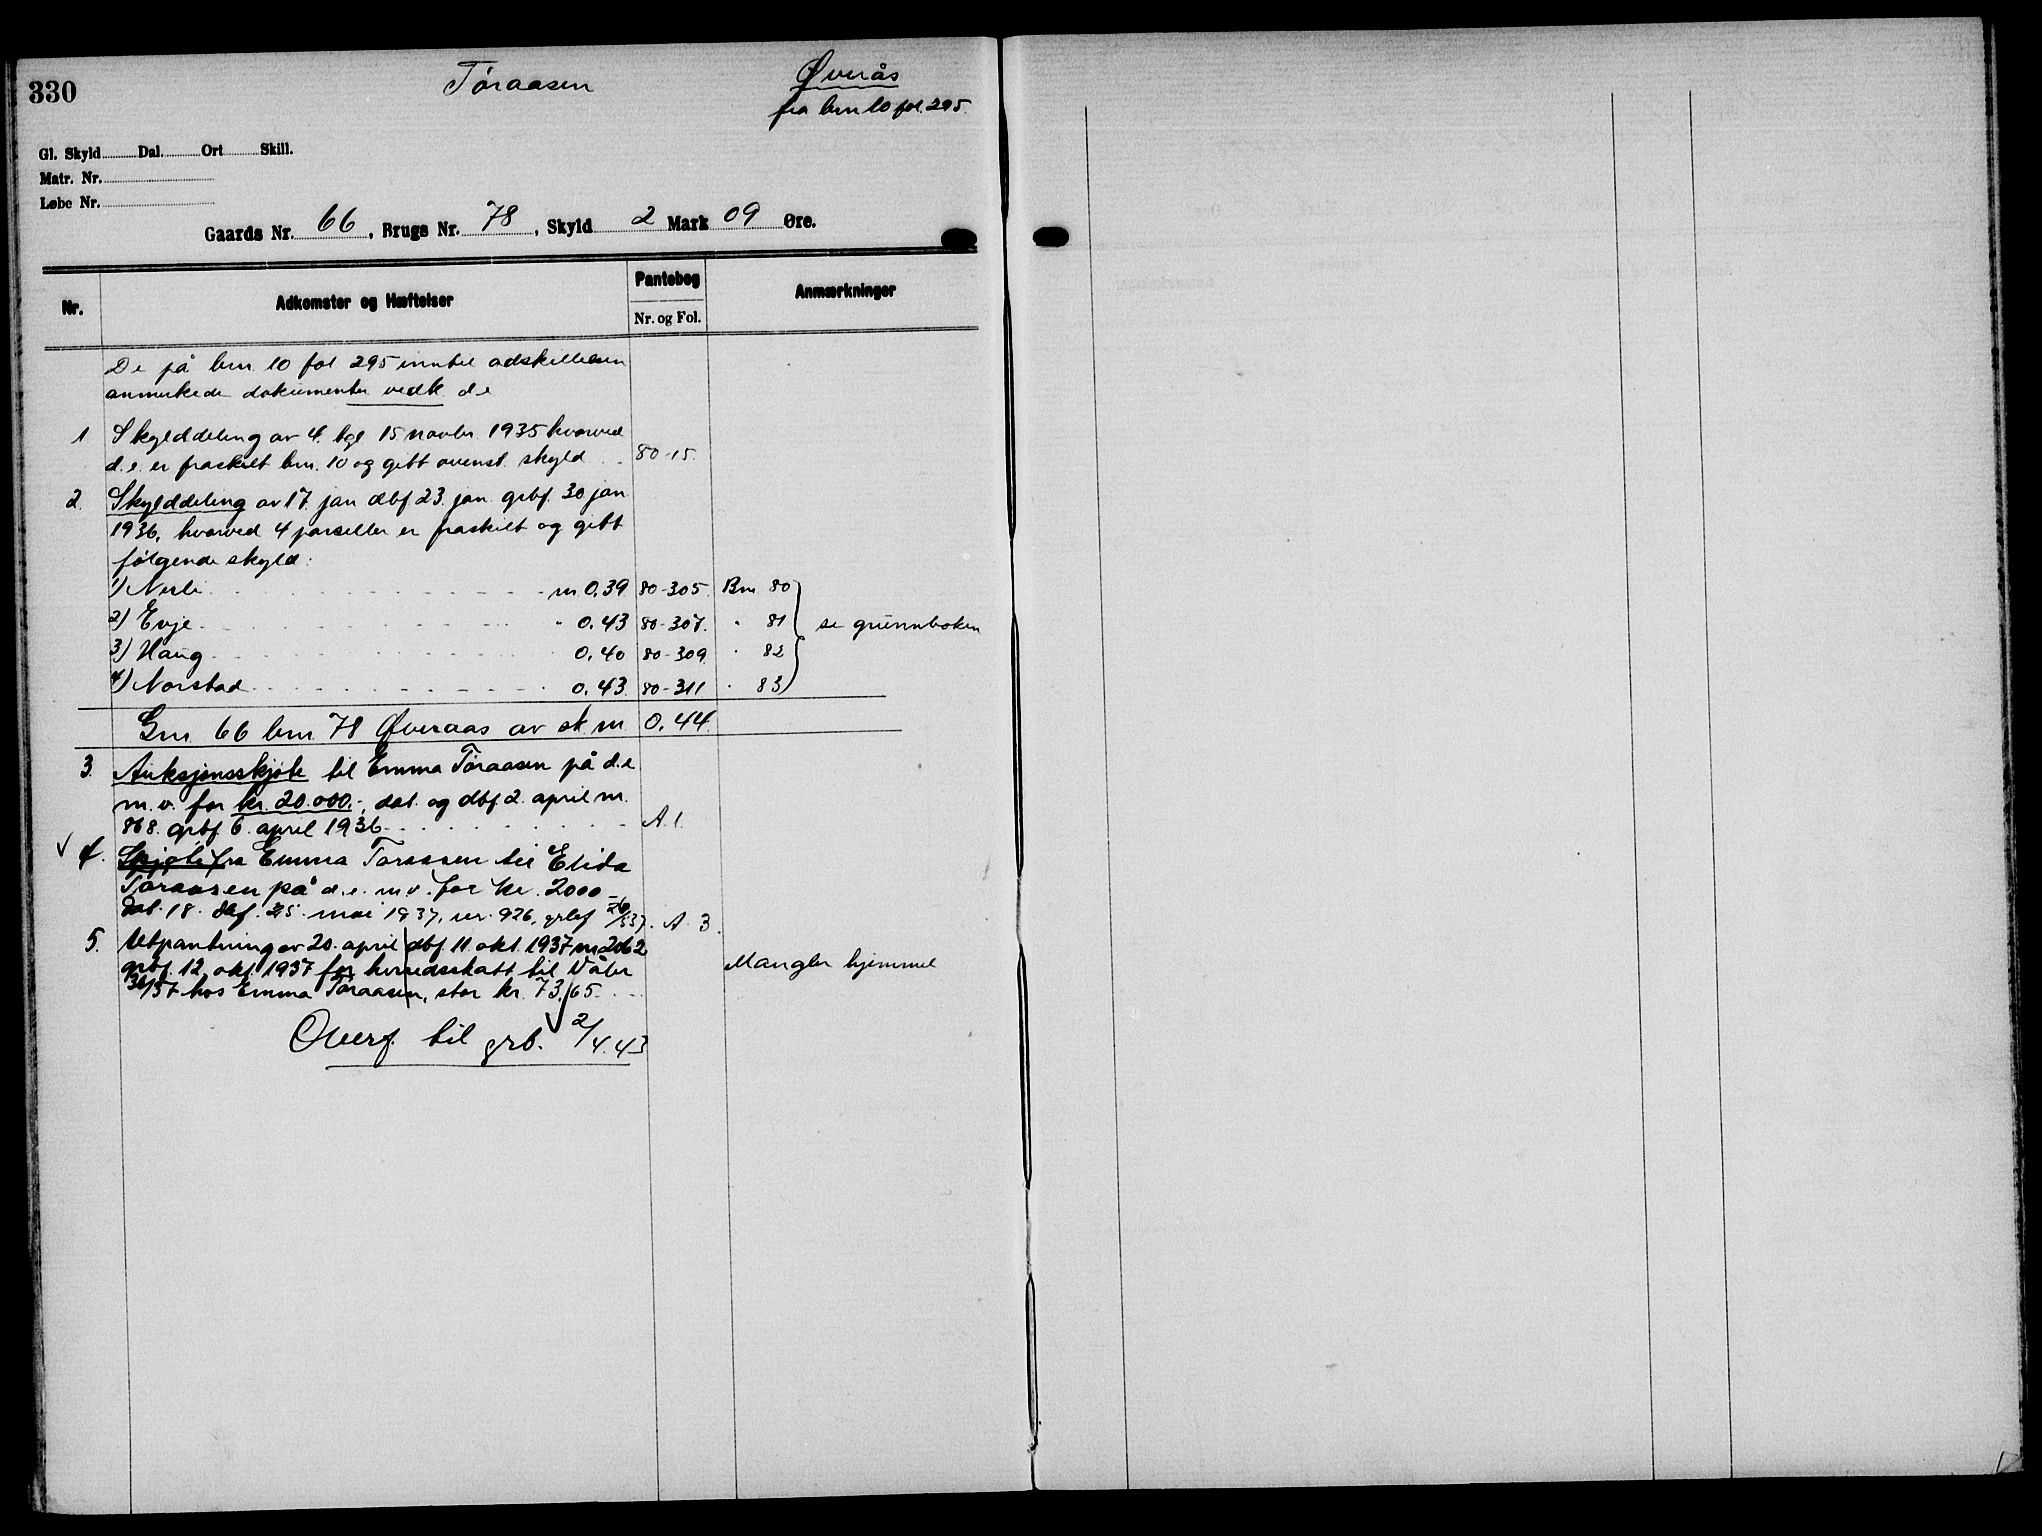 330
Tøraasen
Øverås
fra brn 10 fol. 295.
Gl. Skyld Dal. Ort Skill.
Matr. Nr.
Løbe Nr.
Gaards Nr. 66, Brugs Nr. 78, Skyld 2 Mark 09 Øre.
Nr. Adkomster og Hæftelser Pantebog Anmærkninger
Nr. og Fol.
De på brn. 10 fol 295 inntil adskillelsen
anmerkede dokumenter vedk d.e
1 Skylddeling av 4. tgl 15 novbr. 1935 hvorved
d.e. er fraskilt brn. 10 og gitt ovenst. skyld 80-15.
2. Skylddeling av 17. jan dbf 23. jan. grbf. 30 jan
1936, hvorved 4 parseller er fraskilt og gitt
følgende skyld:
1) Nerli m 0.39 80-305. Brn 80
2) Evje " 0.43 80-307. " 81 se grunnboken
3) Haug 0.40 80-309 " 82
4) Norstad 0.43. 80-311 " 83
Gnr. 66 brn 78 Øveraas av sk m 0.44.
3. Auksjonsskjøte til Emma Tøraasen på d.e
m.v. for kr. 20.000.-, dat. og dbf 2. april nr.
868. grbf. 6. april 1936 A. 1.
4. Skjøte fra Emma Tøraasen til Elida
Tøraasen på d.e. m.v. for kr. 2000
dat. 18. dbf. 25. mai 1937, nr. 926, grbf A. 3.
5. Utpantning av 20. april dbf. 11. okt. 1937 nr 2062
grbf. 12. okt. 1937 for herredsskatt til Våler Mangler hjemmel
36/37 hos Emma Tøraasen, stor kr. 73.65.
Overf. til grb. 2/4.43